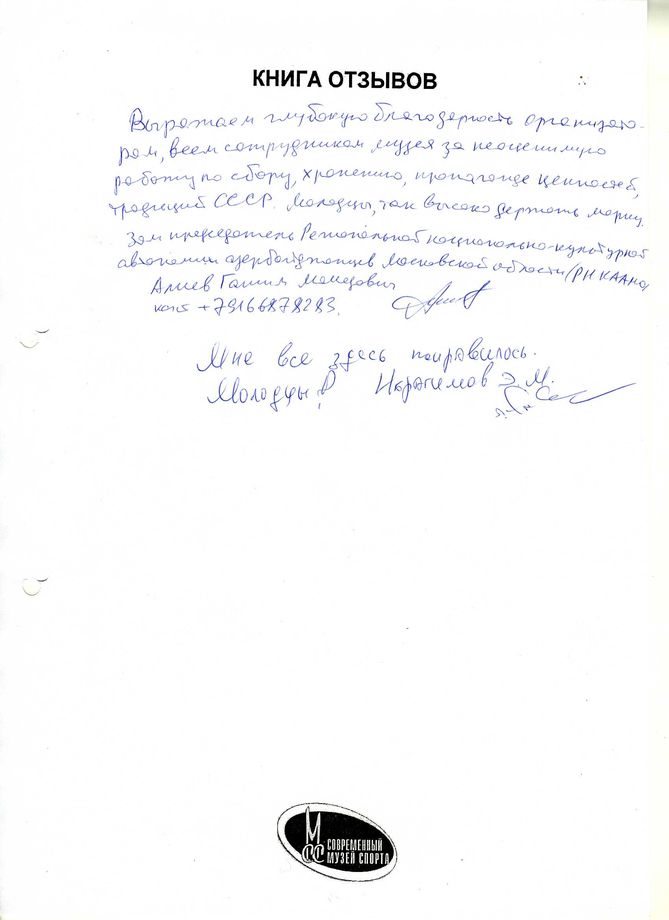 КНИГА ОТЗЫВОВ
Выражаем глубокую благодарность организато-
рам, всем сотрудникам музея за неоценимую
работу по сбору, хранению, пропаганде ценностей,
традиций СССР. Молодцы, так высоко держать марку.
Зам председатель Региональной национально-культурной
автономии азербайджанцев Московской области (РНКААМО)
Алиев Галиб Мамедович
+79166878283.
Мне все здесь понравилось.
Молодцы! Ибрагимов Э. М.
М
СС
СОВРЕМЕННЫЙ
МУЗЕЙ СПОРТА